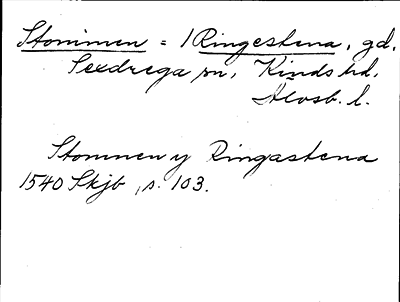 Stommen = 1 Ringestena, gd,
Sexdrega sn, Kinds hd,
Älvsb. l.
Stommen y Ringastena
1540 Skjb, s. 103.